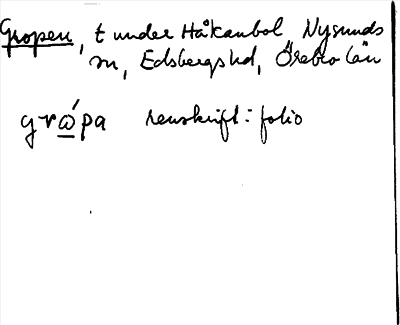 Gropen, t under Håkanbol Nysunds
sn, Edsbergs hd, Örebro län
grɷ́pa renskrift: folio